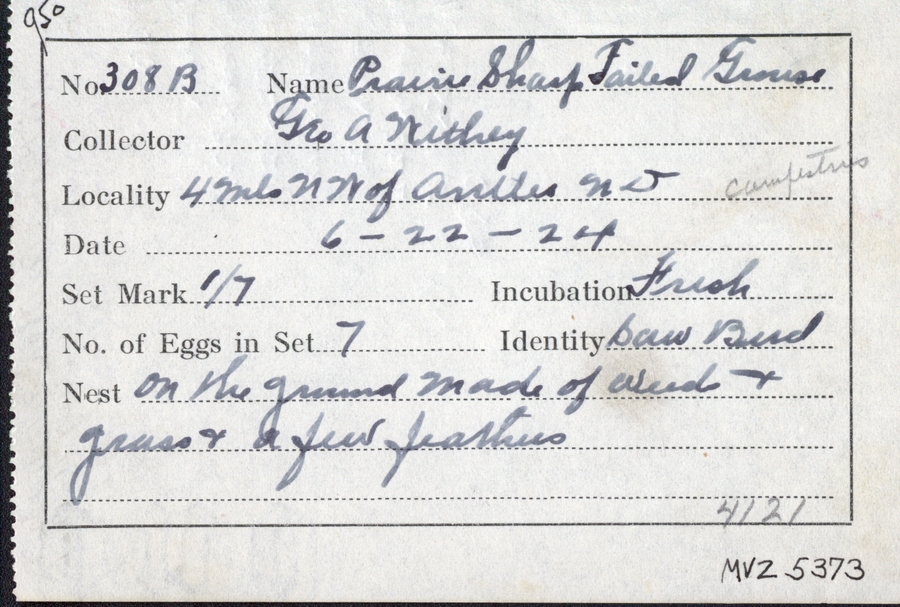 950
No. 308 B Name Prairie Sharp Tailed Grouse
Collector Geo A Withey
Locality 4 mls N W of Antler N D campestris
Date 6 - 22 - 24
Set Mark 1/7 Incubation Fresh
No. of Eggs in Set 7 Identity Saw Bird
Nest on the ground made of weeds +
grass + a few feathers
4121
MVZ 5373